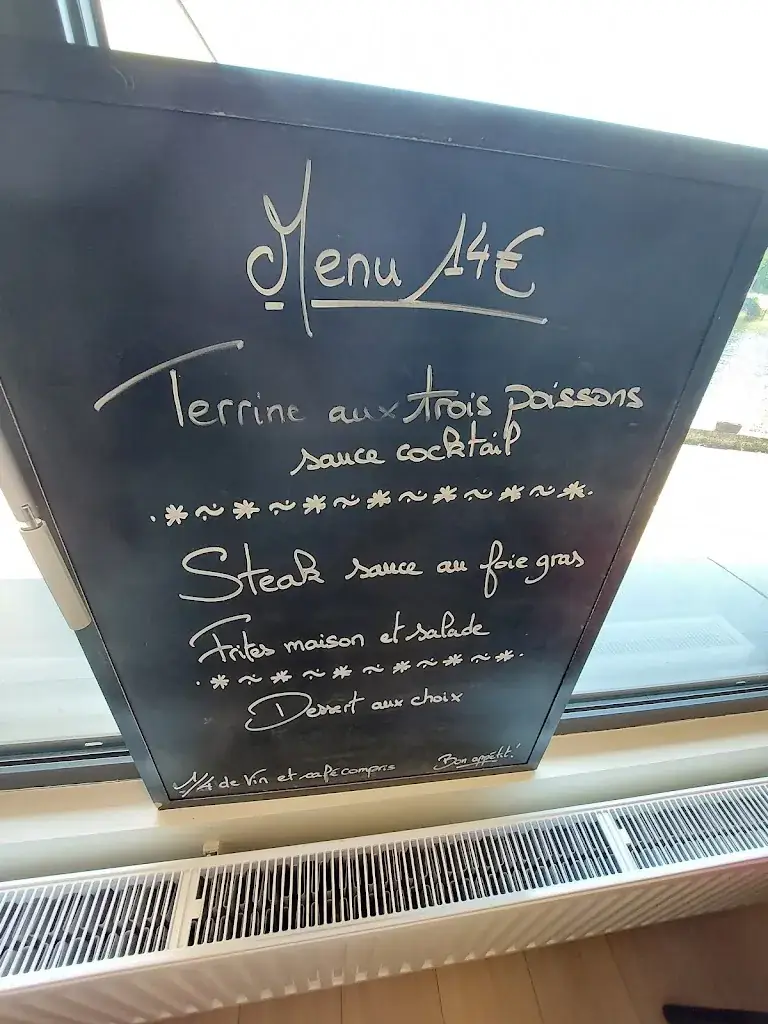 Menu 14€
Terrine aux trois poissons
sauce cocktail
Steak sauce au foie gras
Frites maison et salade
Dessert aux choix
1/4 de Vin et café compris
Bon appétit!